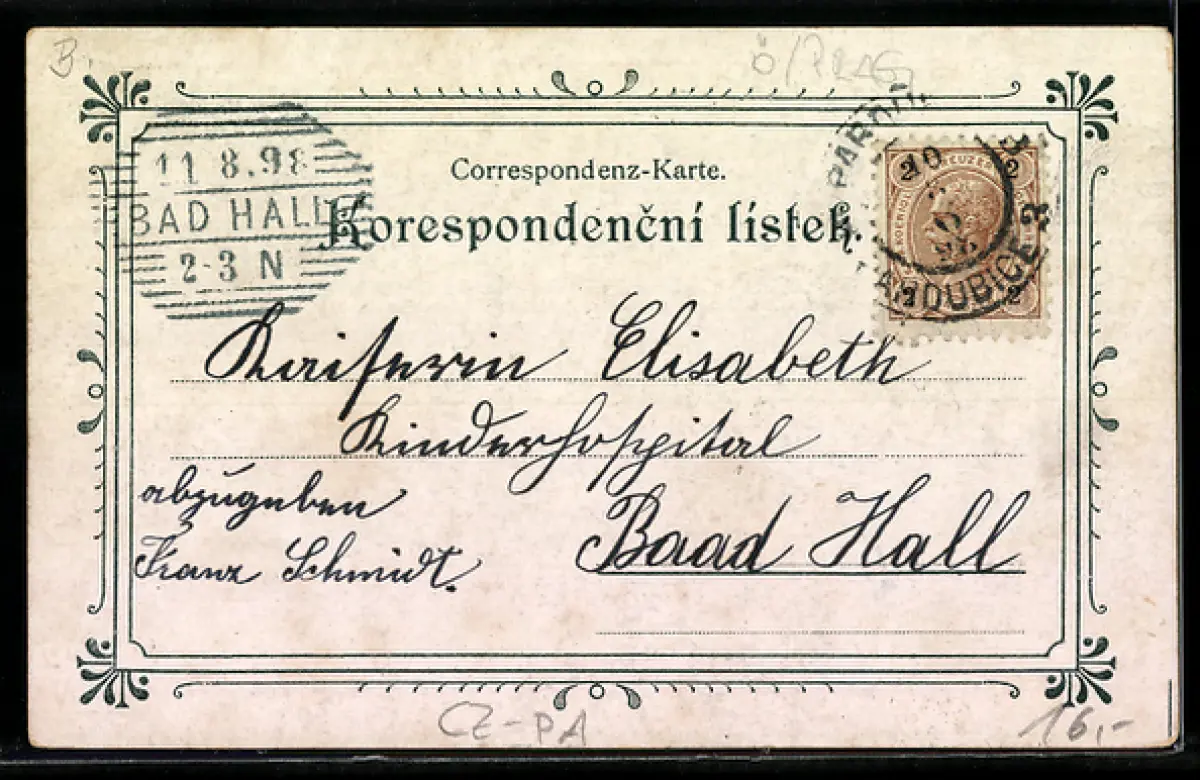 B.
Ö/PRAG
11 8.98
BAD HALL
2-3 N
Correspondenz-Karte.
Korespondenční lístek.
2 2
10
PARDUBICE 2
2 2
Kaiserin Elisabeth
Kinderhospital
abzugeben
Baad Hall
Franz Schmidt.
CZ-PA
16,-